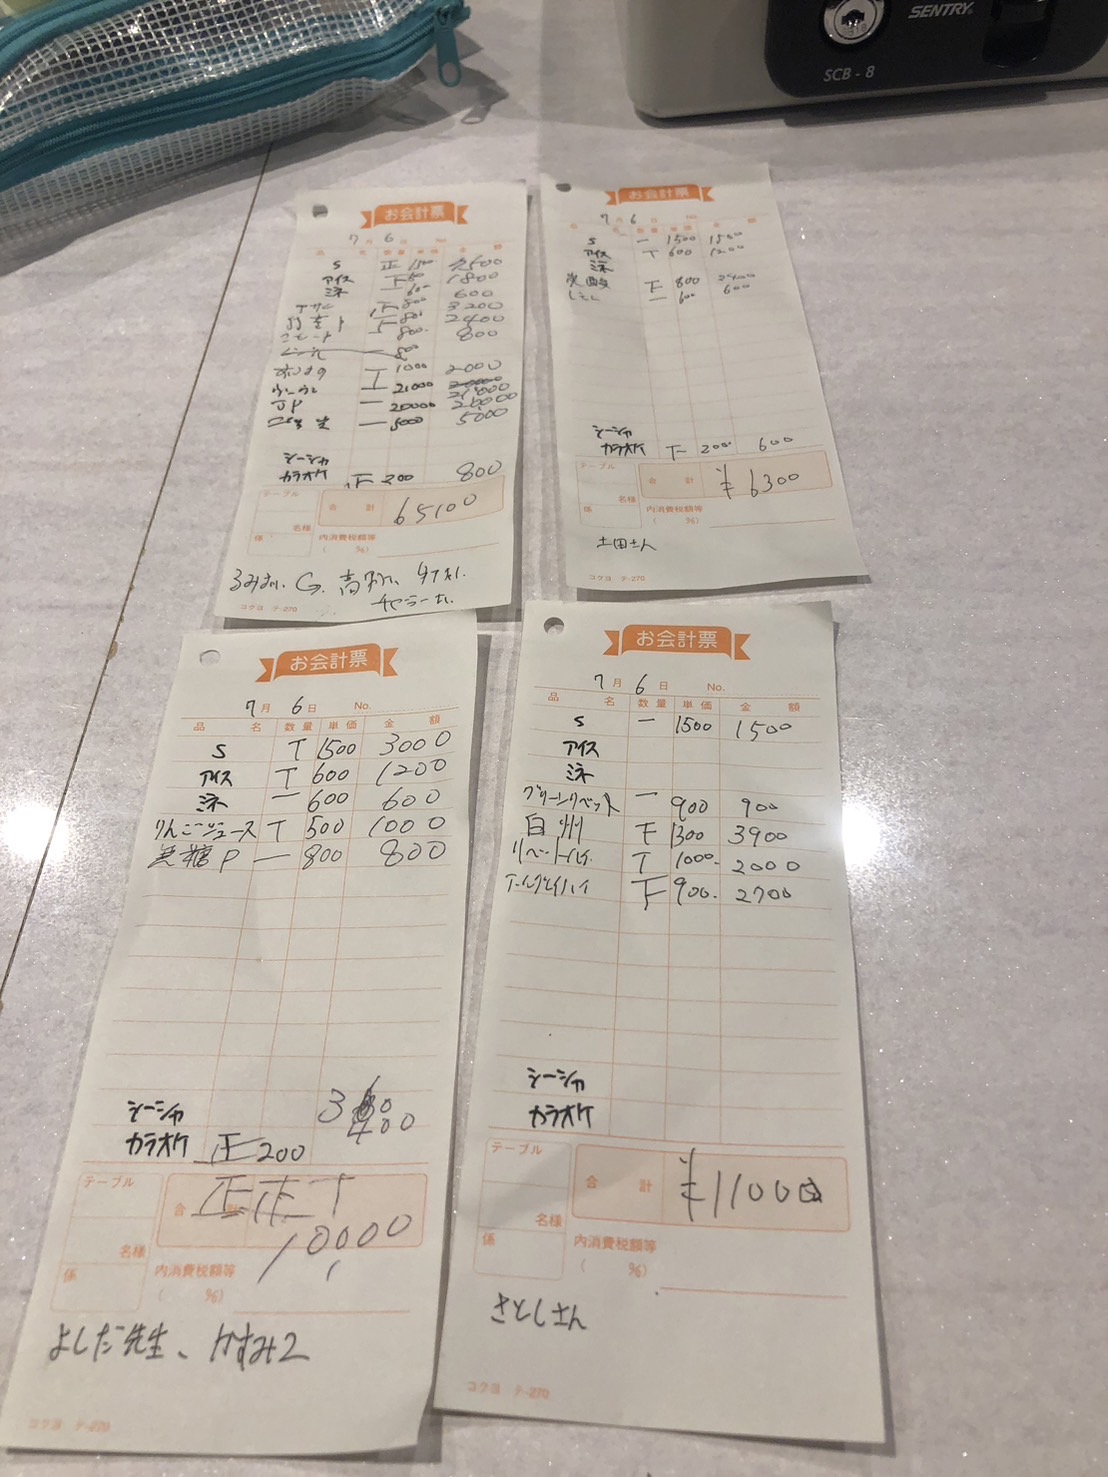 SENTRY
SCB-8
お会計票
7月 6日 No.
品 名 数量 単価 金 額
S 正 1500 7500
アイス 下 600 1800
ミネ 一 600 600
800 3200
下 800 2400
800 800
T 1000 2000
一 21000 21000
JP 一 20000 20000
一 5000 5000
シーシャ
カラオケ 200 800
テーブル
名様
合 計 65100
係
内消費税額等
( %)
コクヨ テ-270
お会計票
7月 6日 No.
S 一 1500 1500
アイス T 600 1200
ミネ
炭酸 下 800 2400
一 600 600
シーシャ
カラオケ 下 200 600
テーブル
名様
合 計 ¥6300
係
内消費税額等
( %)
土田さん
コクヨ テ-270
お会計票
7月 6日 No.
品 名 数量 単価 金 額
S T 1500 3000
アイス T 600 1200
ミネ 一 600 600
りんごジュース T 500 1000
無糖P 一 800 800
シーシャ
3400
カラオケ 正 200
正正T
テーブル
名様
合 計
10,000
係
内消費税額等
( %)
よしだ先生、かすみ2
コクヨ テ-270
お会計票
7月 6日 No.
品 名 数量 単価 金 額
S 一 1500 1500
アイス
ミネ
グリーンリベット 一 900 900
白州 下 1300 3900
リベットハイ T 1000 2000
下 900 2700
シーシャ
カラオケ
テーブル
名様
合 計 ¥11000
係
内消費税額等
( %)
さとしさん
コクヨ テ-270